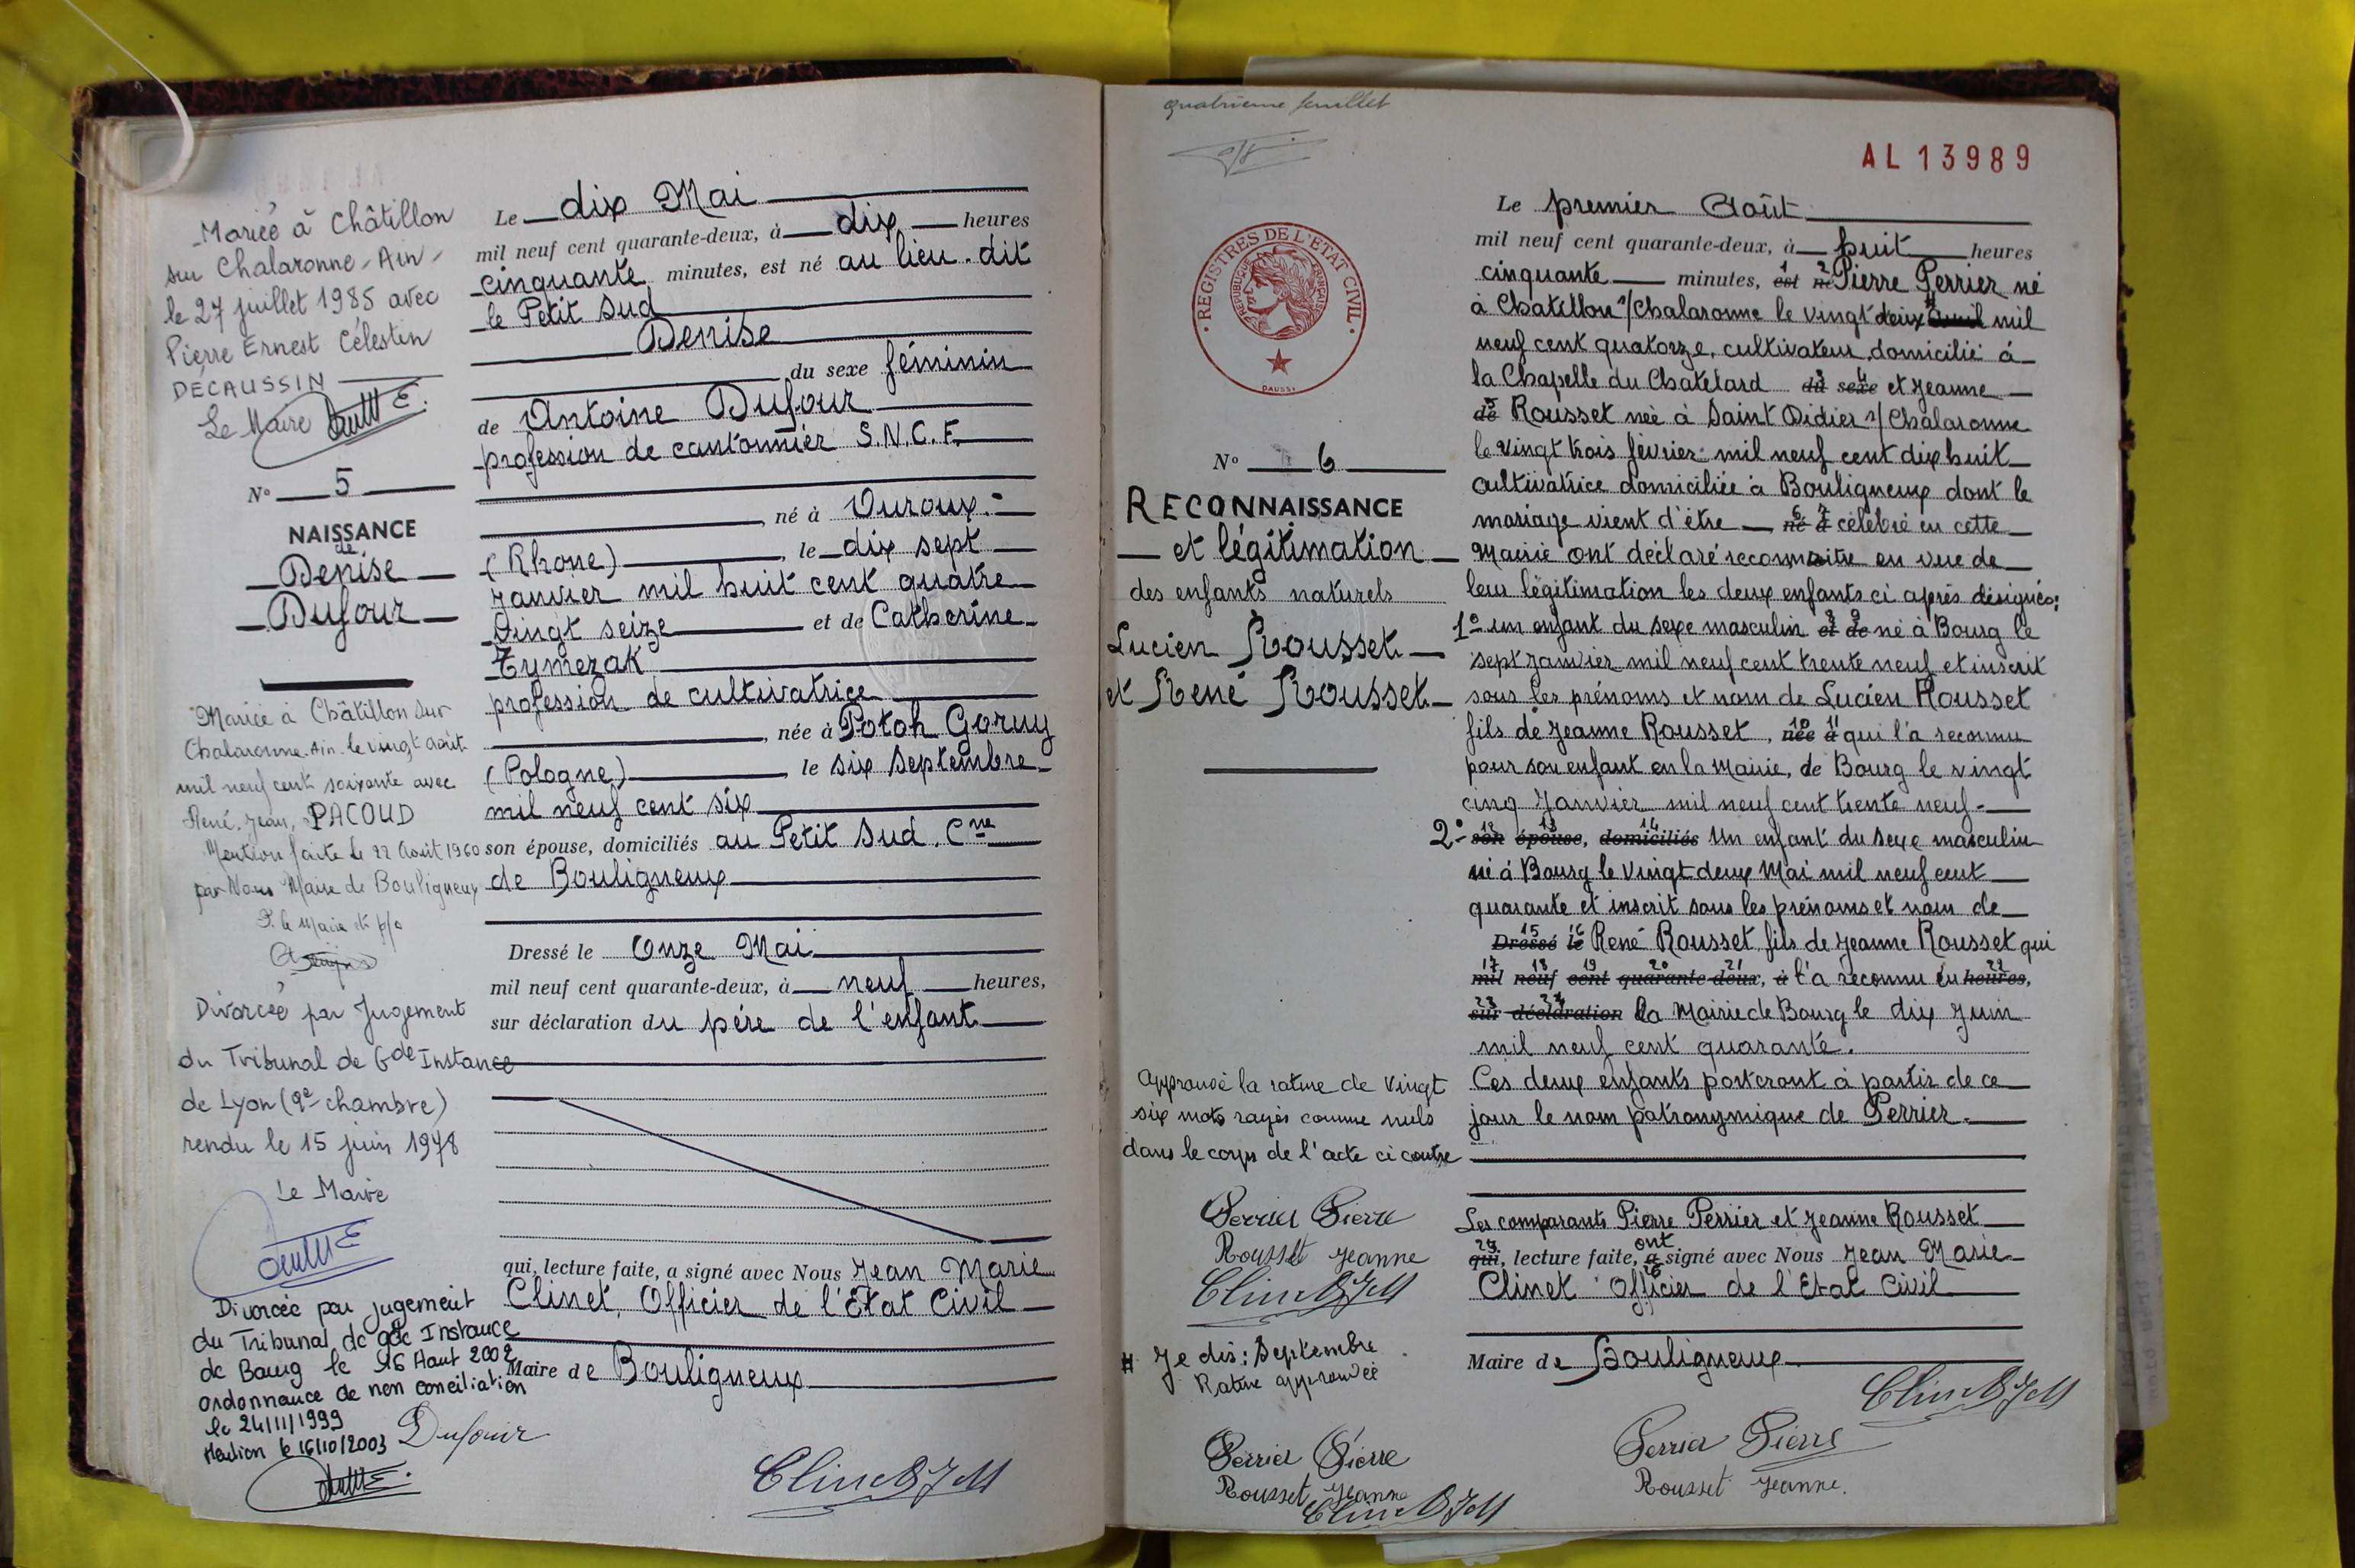 Mariée à Châtillon
sur Chalaronne-Ain-
le 27 juillet 1985 avec
Pierre Ernest Célestin
DÉCAUSSIN
Le Maire
N° 5
NAISSANCE
de
Denise
Dufour
Mariée à Châtillon sur
Chalaronne. Ain. le vingt août
mil neuf cent soixante avec
René, Jean, PACOUD
Mention faite le 22 Août 1960
par Nous Maire de Bouligneux
P. le Maire et p/o
Divorcée par Jugement
du Tribunal de Gde Instance
de Lyon (9e chambre)
rendu le 15 juin 1978
Le Maire
Divorcée par jugement
du Tribunal de gde Instance
de Bourg le 16 Aout 2002
ordonnance de non conciliation
le 24/11/1999
Mention le 16/10/2003
Le dix Mai
mil neuf cent quarante-deux, à dix heures
cinquante minutes, est né au lieu-dit
le Petit Sud
Denise
du sexe féminin
de Antoine Dufour
profession de cantonnier S.N.C.F.
, né à Ouroux
(Rhone) , le dix sept
Janvier mil huit cent quatre
vingt seize et de Catherine
Tymezak
profession de cultivatrice
, née à Potok Gorny
(Pologne) , le six Septembre
mil neuf cent six
son épouse, domiciliés au Petit Sud. Cne
de Bouligneux
Dressé le Onze Mai
mil neuf cent quarante-deux, à neuf heures,
sur déclaration du père de l'enfant
qui, lecture faite, a signé avec Nous Jean Marie
Clinet, Officier de l'État Civil
Maire de Bouligneux
Dufour
Clinet J M
quatrième feuillet
AL 13989
REGISTRES DE L'ETAT CIVIL
REPUBLIQUE FRANÇAISE
N° 6
RECONNAISSANCE
et légitimation
des enfants naturels
Lucien Rousset
et René Rousset
Approuvé la rature de vingt
six mots rayés comme nuls
dans le corps de l'acte ci contre
Perrier Pierre
Rousset Jeanne
Clinet J M
# Je dis: Septembre
Rature approuvée
Perrier Pierre
Rousset Jeanne
Clinet J M
Le premier Août
mil neuf cent quarante-deux, à huit heures
cinquante minutes, est né Pierre Perrier né
à Chatillon s/Chalaronne le vingt deux # mil
neuf cent quatorze, cultivateur, domicilié à
la Chapelle du Chatelard du sexe et Jeanne
de Rousset née à Saint Didier s/Chalaronne
le vingt trois février mil neuf cent dix huit
cultivatrice domiciliée à Bouligneux dont le
mariage vient d'être né à célébré en cette
Mairie ont déclaré reconnaitre en vue de
leur légitimation les deux enfants ci après désignés:
1° un enfant du sexe masculin et de né à Bourg le
sept Janvier mil neuf cent trente neuf et inscrit
sous les prénoms et nom de Lucien Rousset
fils de Jeanne Rousset, née à qui l'a reconnu
pour son enfant en la Mairie, de Bourg le vingt
cinq Janvier mil neuf cent trente neuf.
2° son épouse, domiciliés Un enfant du sexe masculin
né à Bourg le vingt deux Mai mil neuf cent
quarante et inscrit sous les prénoms et nom de
Dressé le René Rousset fils de Jeanne Rousset qui
mil neuf cent quarante-deux, à l'a reconnu en heures,
sur déclaration la Mairie de Bourg le dix Juin
mil neuf cent quarante.
Ces deux enfants porteront à partir de ce
jour le nom patronymique de Perrier.
Les comparants Pierre Perrier et Jeanne Rousset
qui, lecture faite, a ont signé avec Nous Jean Marie
Clinet Officier de l'Etat Civil
Maire de Bouligneux
Clinet J M
Perrier Pierre
Rousset Jeanne.